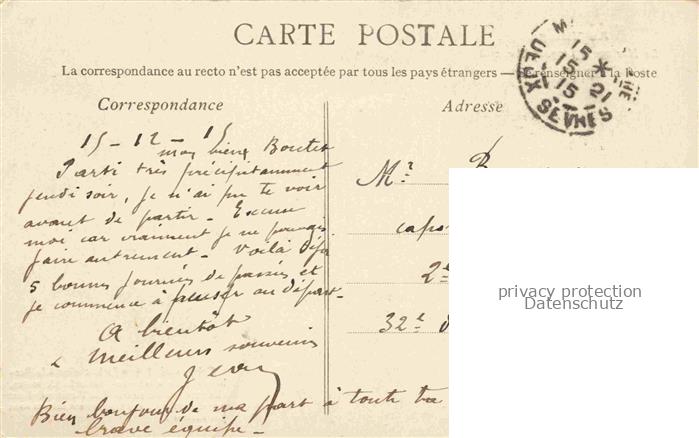 CARTE POSTALE
La correspondance au recto n'est pas acceptée par tous les pays étrangers — Se renseigner à la Poste
Correspondance
Adresse
15 * 
15 - 12
DEUX SEVRES
15 - 12 - 15
mon vieux Boutet
Parti très précipitamment
jeudi soir, je n'ai pu te voir
avant de partir - Excuse
moi car vraiment je ne pouvais
faire autrement - Voilà déjà
5 bonnes journées de passées et
je commence à penser au départ -
A bientôt
Meilleurs souvenirs
Jean
Bien bonjour de ma part à toute ta
brave équipe -
Mr
capo
2e
32e
privacy protection
Datenschutz